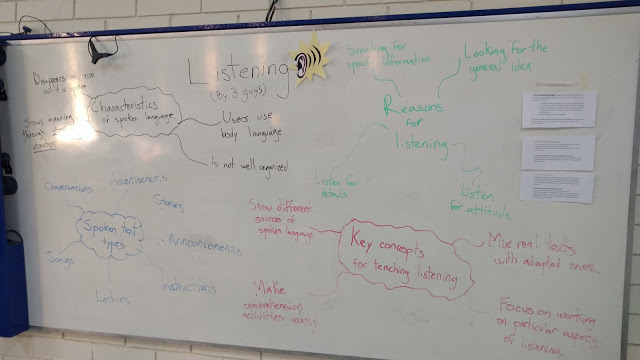 Listening
(By 3 guys)
Disappears as soon
as it is spoken
Shows meaning
through
Characteristics
of spoken language
Users use
body language
Is not well organized
Searching for
specific information
Looking for the
general idea
Reasons
for
listening
Listen for
details
Listen
for attitude
Conversations
Advertisements
Stories
Spoken text
types
Announcements
Songs
Lectures
Instructions
Show different
sources of
spoken language
Key concepts
for teaching listening
Mix real texts
with adapted ones.
Make
comprehension
activities easy
Focus on working
on particular aspects
of listening